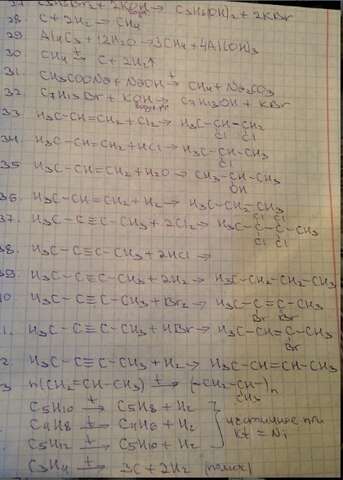 27. C3H6Br2 + 2KOH → C3H6(OH)2 + 2KBr
28. C + 2H2 → CH4
29. Al4C3 + 12H2O → 3CH4 + 4Al(OH)3
30. CH4 →t C + 2H2↑
31. CH3COONa + NaOH →t CH4 + Na2CO3
32. C7H13Br + KOH → C7H13OH + KBr
33. H3C-CH=CH2 + Cl2 → H3C-CH-CH2
Cl Cl
34. H3C-CH=CH2 + HCl → H3C-CH-CH3
Cl
35. H3C-CH=CH2 + H2O → CH3-CH-CH3
OH
36. H3C-CH=CH2 + H2 → H3C-CH2-CH3
Cl Cl
37. H3C-C≡C-CH3 + 2Cl2 → H3C-C-C-CH3
Cl Cl
38. H3C-C≡C-CH3 + 2HCl →
39. H3C-C≡C-CH3 + 2H2 → H3C-CH2-CH2-CH3
0. H3C-C≡C-CH3 + Br2 → H3C-C=C-CH3
Br Br
1. H3C-C≡C-CH3 + HBr → H3C-CH=C-CH3
Br
2. H3C-C≡C-CH3 + H2 → H3C-CH=CH-CH3
3. n(CH2=CH-CH3) →t (-CH2-CH-)n
CH3
C5H10 →t C5H8 + H2
C4H8 →t C4H6 + H2 частичное при
C5H12 →t C5H10 + H2 kt = Ni
C3H4 →t 3C + 2H2 (полное)